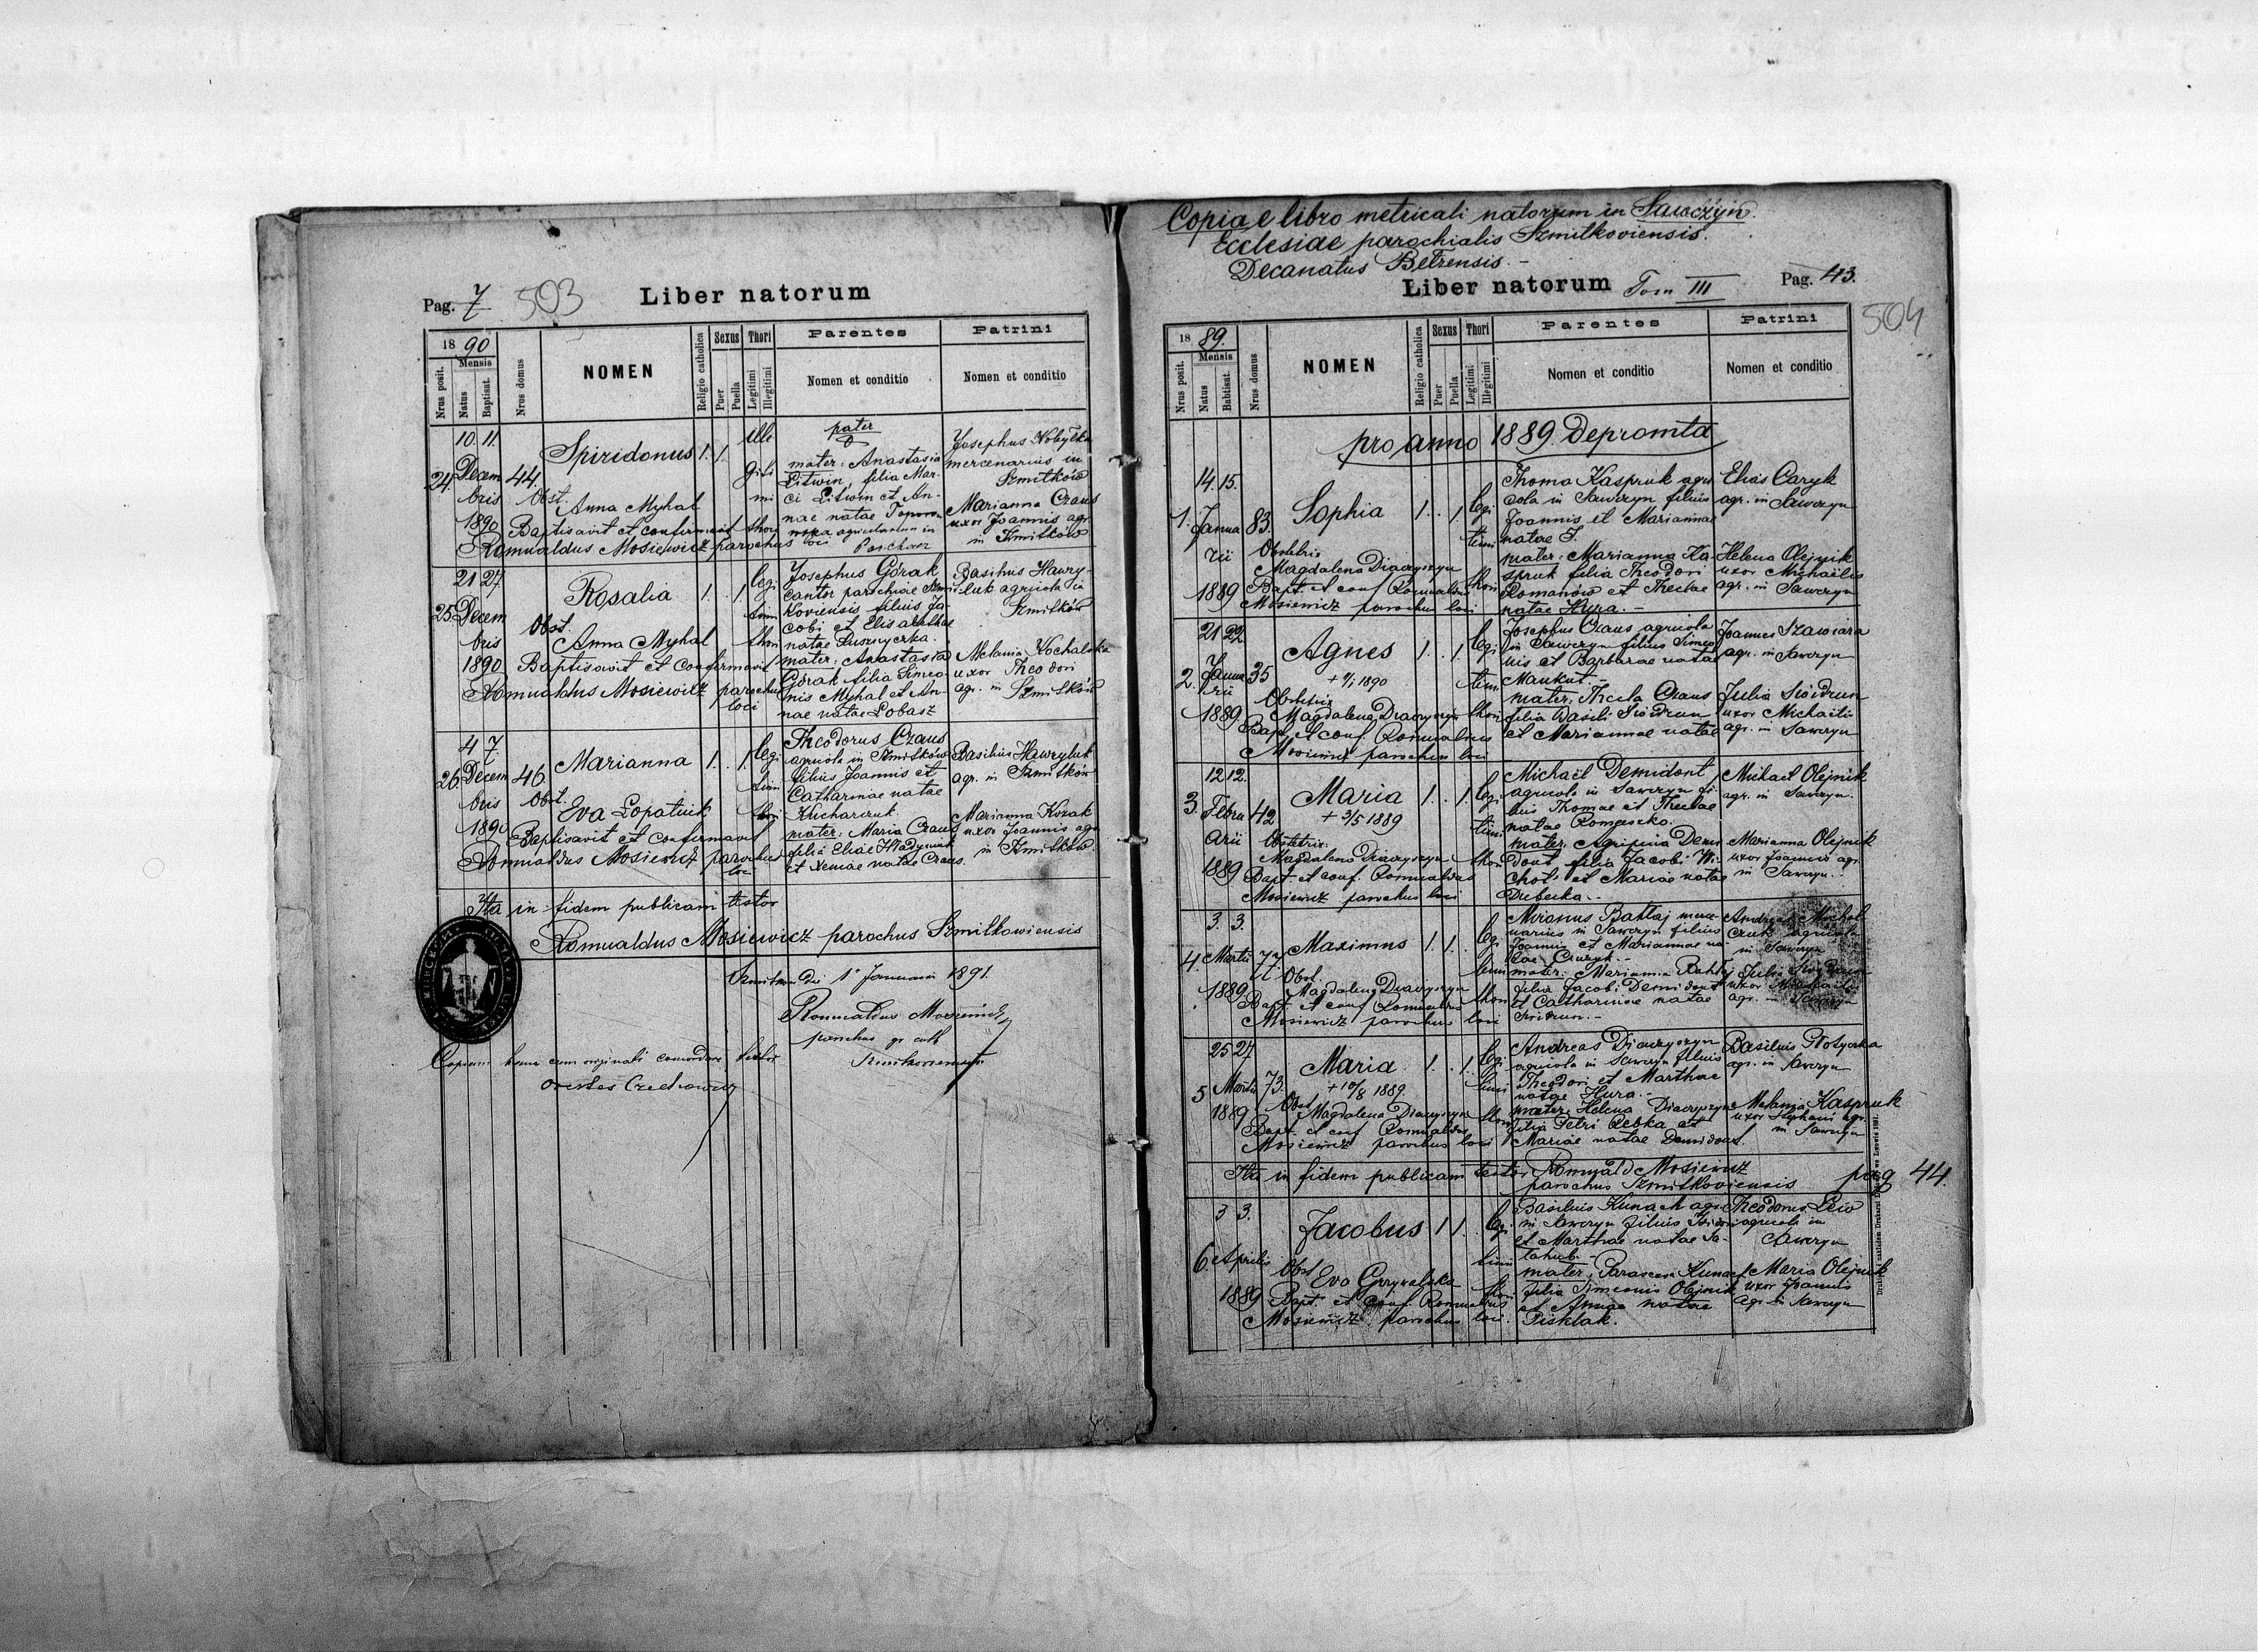 Pag. 7
503
Liber natorum
18 90
Mensis
Nrus posit.
Natus
Baptisat.
Nrus domus
NOMEN
Religio catholica
Sexus
Puer
Puella
Thori
Legitimi
Illegitimi
Parentes
Nomen et conditio
Patrini
Nomen et conditio
24. 10. 11. Decem bris 1890 44.
Spiridonus 1. 1. ille giti mi thori
Obst. Anna Myhal
Baptisavit et confirmavit
Romualdus Mosiewicz parochus loci
pater
mater: Anastasia
Litwin, filia Mar-
ci Litwin et An-
nae natae
Josephus Kobyłka
mercenarius in
Szmitków
Marianna Czaus
uxor Joannis agr.
in Szmitków
25. 21 27. Decem bris 1890
Rosalia 1. 1. legi timi thori
Obst.
Anna Myhal
Baptisavit et Confirmavit
Romualdus Mosiewicz parochus
loci
Josephus Górak
cantor parochiae Szmit
koviensis filius Ja-
cobi et Elisabethae
natae
mater: Anastasia
Górak filia Simeo-
nis Myhal et An-
nae natae Lobasz
Basilius Hawry-
luk agricola in
Szmitków
Melania Kochalska
uxor Theodori
agr. in Szmitków
26. 4 7. Decem bris 1890 46.
Marianna 1. 1. legi timi thori
Obst.
Eva Lopatiuk
Baptisavit et Confirmavit
Romualdus Mosiewicz parochus
loci
Theodorus Czaus
agricola in Szmitków
filius Joannis et
Catharinae natae
Kucharczuk.
mater: Maria Czaus
filia Eliae Hładyniuk
et Xeniae natae Czaus.
Basilius Hawryluk
agr. in Szmitków
Marianna Kozak
uxor Joannis agr.
in Szmitków.
Ita in fidem publicam testor
Romualdus Mosiewicz parochus Szmitkowiensis
die 1 Januarii 1891.
Romualdus Mosiewicz
parochus gr cath
Copiam hanc cum originali concordare testor
Orestes Czechowicz
Copia e libro metricali natorum in Sawczyn.
Ecclesiae parochialis Szmitkoviensis.
Decanatus Belzensis.-
Liber natorum Tom III
Pag. 43.
504
18 89.
Mensis
Nrus posit.
Natus
Babtisat.
Nrus domus
NOMEN
Religio catholica
Sexus
Puer
Puella
Thori
Legitimi
Illegitimi
Parentes
Nomen et conditio
Patrini
Nomen et conditio
pro anno 1889. depromta
1. 14. 15. Janua rii 1889 83.
Sophia 1. 1. legi timi thori
Obstetrix
Magdalena Diaczyszyn
Bapt. et conf. Romualdus
Mosiewicz parochus loci
Thoma Kaspruk agri
cola in Sawczyn filius
Joannis et Mariannae
natae
mater: Marianna Ka-
spruk filia Theodori
Romanów et Theclae
natae Hura.-
Elias Caryk
agr. in Sawczyn
Helena Olejnik
uxor Michaëlis
agr. in Sawczyn
2. 21 22. Janua rii 1889 35
Agnes 1. 1. legi timi thori
+ 9/1 1890
Obstetrix
Magdalena Diaczyszyn
Bapt. et conf. Romualdus
Mosiewicz parochus loci
Josephus Czaus agricola
in Sawczyn filius Simeo
nis et Barbarae natae
Maukut.-
mater: Thecla Czaus
filia Basili
et Mariannae natae
Joannes Szawiara
agr. in Sawczyn
Julia
uxor Michaëlis
agr. in Sawczyn
3. 12 12. Febru arii 1889 42
Maria 1. 1. legi timi thori
+ 3/5 1889
Obstetrix.
Magdalena Diaczyszyn
Bapt. et conf. Romualdus
Mosiewicz parochus loci
Michaël Demidont
agricola in Sawczyn fi-
lius Thomae et Theclae
natae
mater: Agripina Demi
dont filia Jacobi Wi-
chot et Mariae natae
Dubecka.-
Michael Olejnik
agr. in Sawczyn.
Marianna Olejnik
uxor Joannis agr.
in Sawczyn.
4. 3. 3. Martii 1889 77.
Maximus 1. 1. legi timi thori
Obst.
Magdalena Diaczyszyn
Bapt. et conf. Romualdus
Mosiewicz parochus loci
Mironus Bahlaj merce
narius in Sawczyn filius
Joannis et Mariannae na-
tae
mater: Marianna Bahlaj
filia Jacobi Demidont
et Catharinae natae
Andreas
agricola
in Sawczyn
Julia
uxor Michaëlis
agr. in Sawczyn
5 25 27. Martii 1889 73.
Maria 1. 1. legi timi thori
+ 10/8 1889
Obst.
Magdalena Diaczyszyn
Bapt. et conf. Romualdus
Mosiewicz parochus loci
Andreas Diaczyszyn
agricola in Sawczyn filius
Theodori et Marthae
natae Hura.-
mater Helena Diaczyszyn
filia Petri Rebka et
Mariae natae Demidont.
Basilius
agr. in Sawczyn
Melania Kaspruk
uxor Stephani agr.
in Sawczyn
Ita in fidem publicam testor Romuald Mosiewicz
parochus Szmitkoviensis
pag 44.
6. 3 3. Aprilis 1889
Jacobus 1 1. legi timi thori
Obst.
Eva Gryralska
Bapt. et conf. Romualdus
Mosiewicz parochus loci.
Basilius Kunach agr.
in Sawczyn filius
et Marthae natae Ja-
mater: Parasceva Kunach
filia Simeonis Olejnik
et Annae natae
Pisklak.
Theodorus
agricola in
Sawczyn
Maria Olejnik
uxor Joannis
agr. in Sawczyn